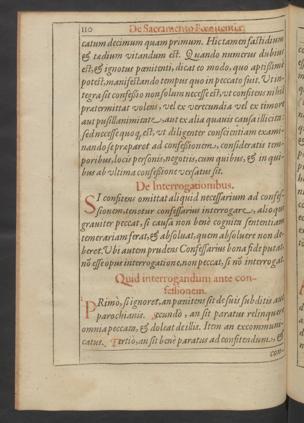 110 De Sacramento Pœnitentiæ.
catum decimum quam primum. Hic tamen fastidium
& tædium vitandum est. Quando numerus dubius
est, & ignotus pænitenti, dicat eo modo, quo aptissimè
potest, manifestando tempus quo in peccato fuit. Ut in-
tegra sit confessio non solum necesse est, ut confitens nihil
prætermittat volens, vel ex verecundia vel ex timore
aut pusillanimitate, aut ex alia quavis causa illicita:
sed necesse quoq, est, ut diligenter conscientiam exami-
nando se præparet ad confessionem, consideratis tem-
poribus, locis personis, negotijs, cum quibus, & in qui-
bus ab ultima confessione versatus sit.
De Interrogationibus.
SI confitens omittat aliquid necessarium ad confes-
sionem, tenetur confessarius interrogare, alioqui
graviter peccat, si causa non benè cognita sententiam
temerariam ferat, & absolvat, quem absolvere non de-
beret. Ubi autem prudens Confessarius bona fide putat,
nō esse opus interrogatione, non peccat, si nō interrogat.
Quid interrogandum ante con-
fessionem.
PRimò, si ignoret, an pænitens sit de suis subditis aut
parochianis. Secundò, an sit paratus relinquere
omnia peccata, & doleat de illis. Item an excommuni-
catus. Tertio, an sit benè paratus ad confitendum, &
con-